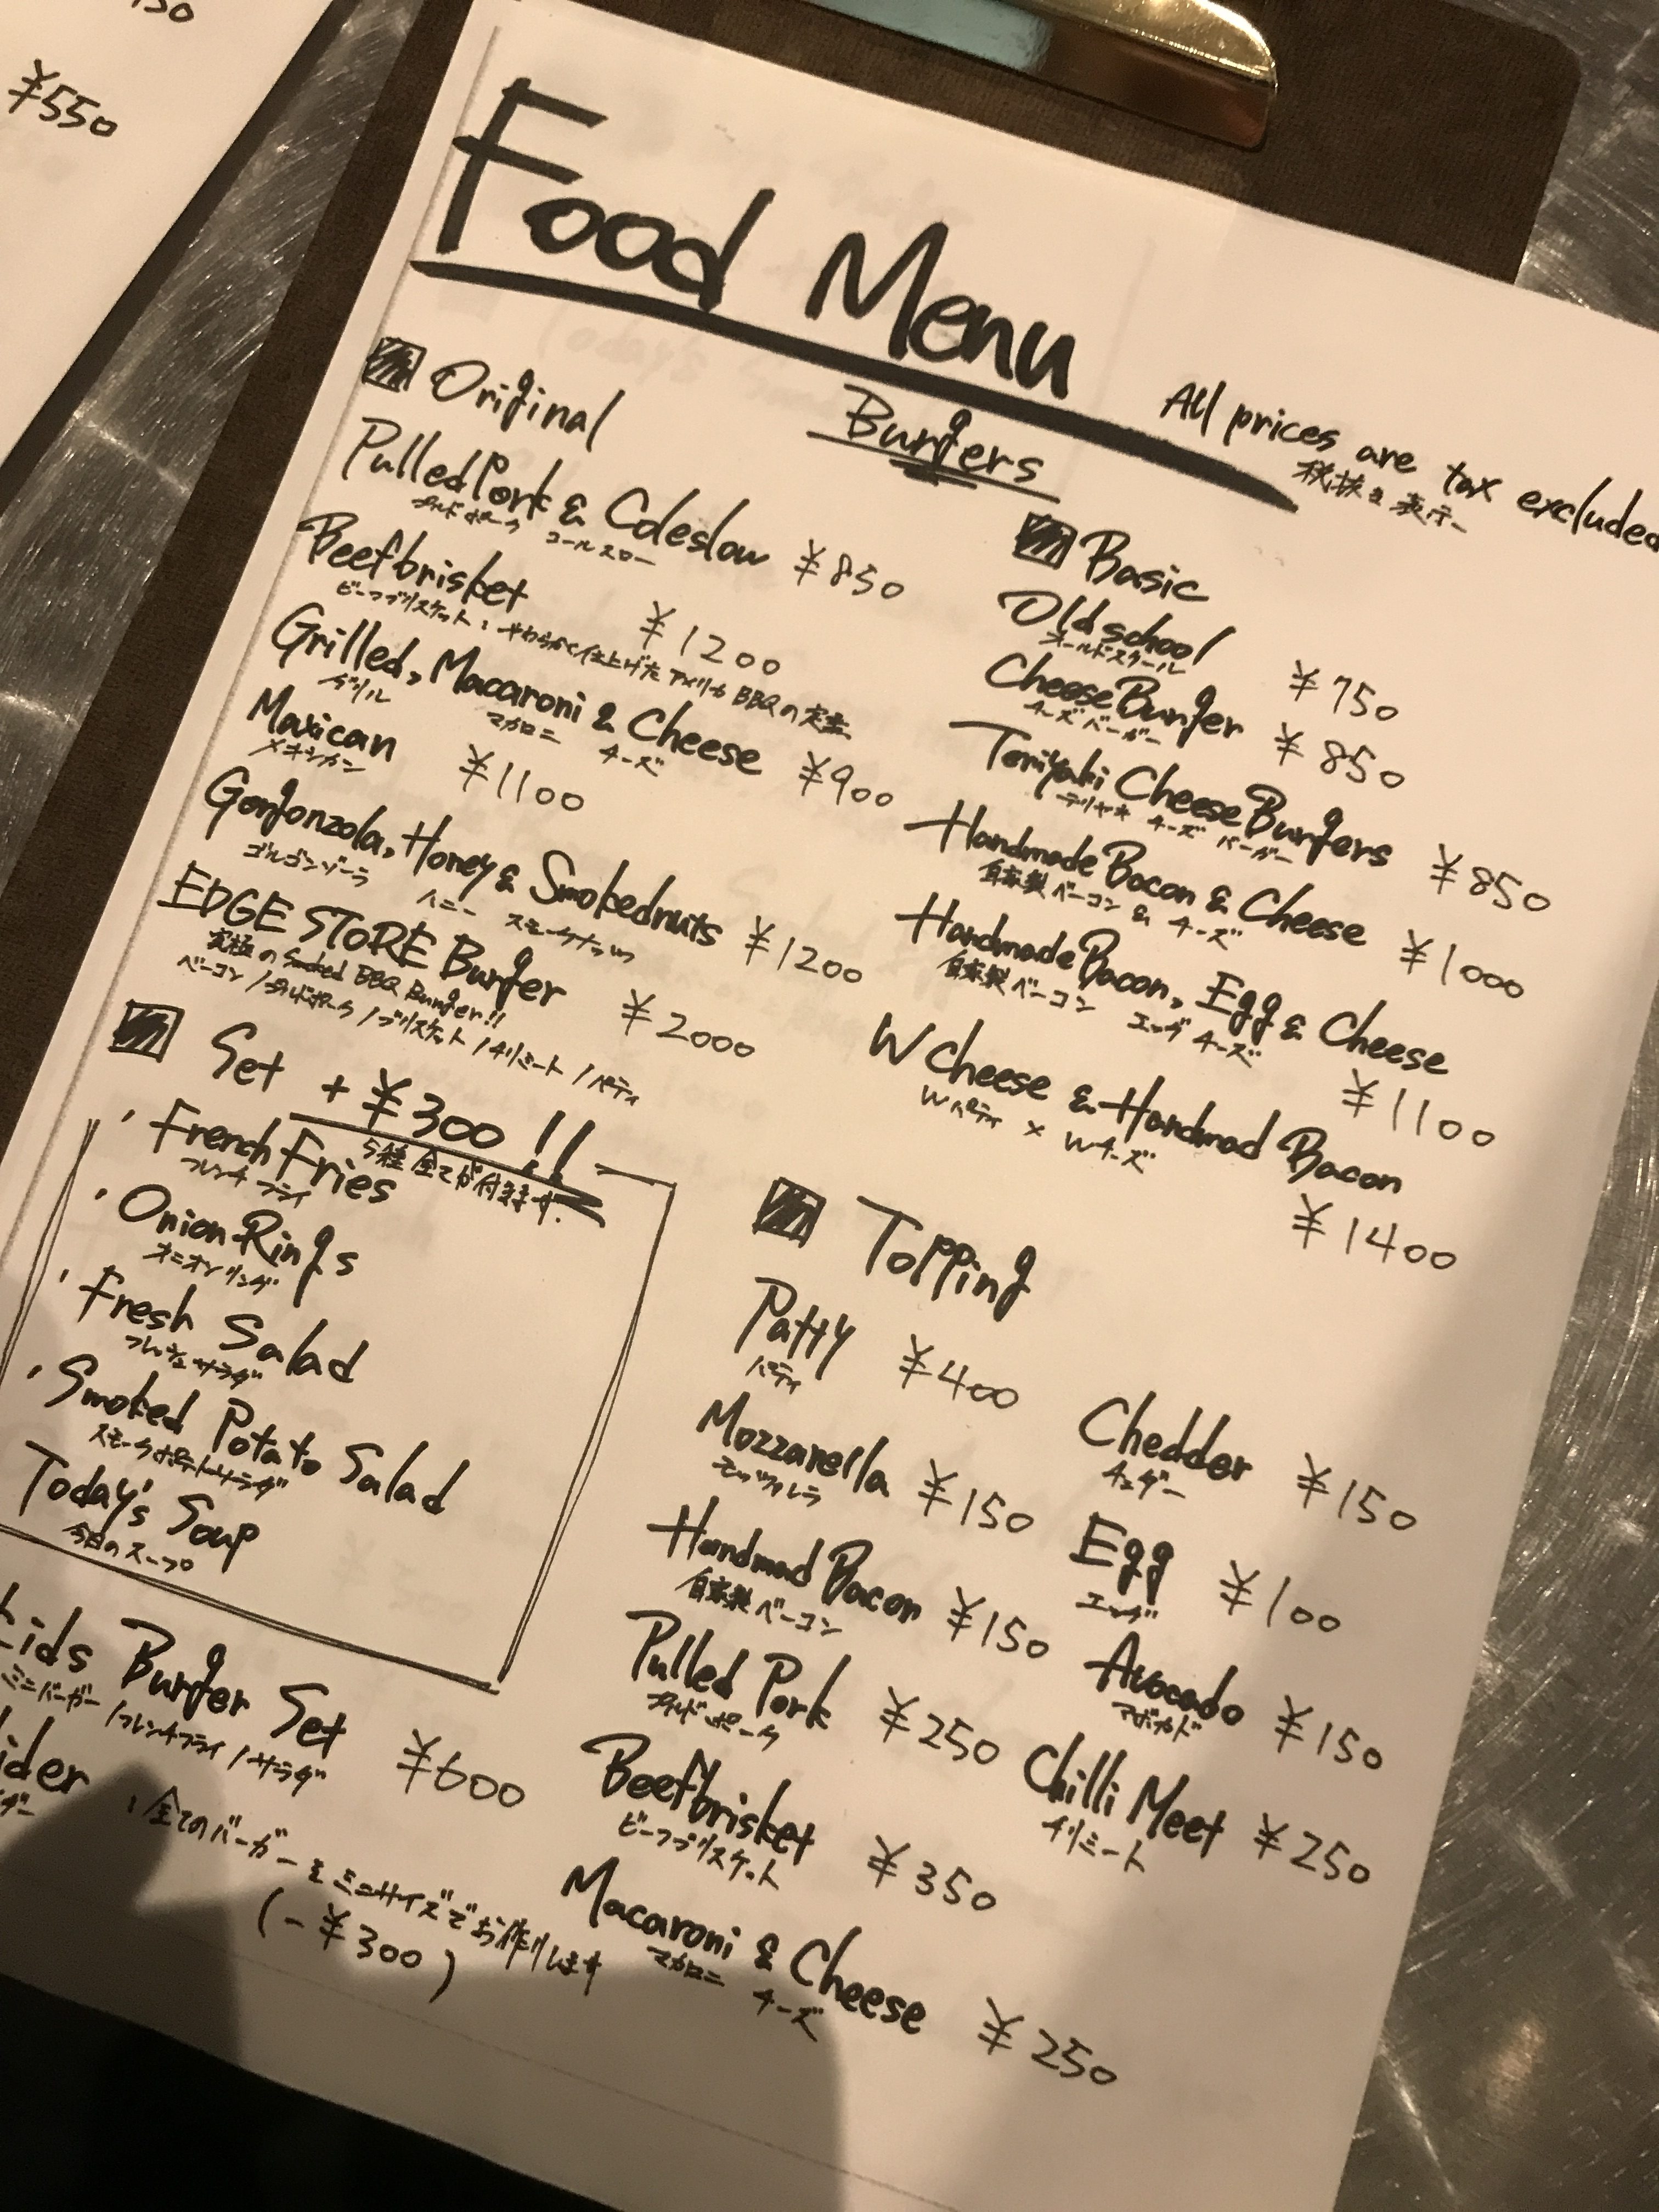 ¥550
Food Menu
All prices are tax excluded
税抜き表示
Burgers
Original
Pulled Pork & Coleslow ¥850
プルドポーク コールスロー
Beefbrisket ¥1200
ビーフブリスケット : やわらかく仕上げた アメリカ BBQの定番
Grilled, Macaroni & Cheese ¥900
グリル マカロニ チーズ
Maxican ¥1100
メキシカン
Gorgonzola, Honey & Smokednuts ¥1200
ゴルゴンゾーラ ハニー スモークナッツ
EDGE STORE Burger ¥2000
究極の Smoked BBQ Burger!!
ベーコン / プルドポーク / ブリスケット / チリミート / パティ
Basic
Old school ¥750
オールドスクール
Cheese Burger ¥850
チーズバーガー
Teriyaki Cheese Burgers ¥850
テリヤキ チーズ バーガー
Handmade Bacon & Cheese ¥1000
自家製 ベーコン & チーズ
Handmade Bacon, Egg & Cheese ¥1100
自家製 ベーコン エッグ チーズ
W Cheese & Handmad Bacon ¥1400
Wパティ × Wチーズ
Set +¥300!!
5種全てが付きます.
・French Fries
フレンチフライ
・Onion Rings
オニオンリング
・Fresh Salad
フレッシュサラダ
・Smoked Potato Salad
スモークポテトサラダ
Today's Soup
今日のスープ
kids Burger Set ¥600
ミニバーガー / フレンチフライ / サラダ
ider : 全てのバーガーをミニサイズでお作りします
ダー
(-¥300)
Topping
Patty ¥400
パティ
Chedder ¥150
チェダー
Mozzarella ¥150
モッツァレラ
Egg ¥100
エッグ
Handmad Bacon ¥150
自家製 ベーコン
Avocado ¥150
アボカド
Pulled Pork ¥250
プルド ポーク
Chilli Meet ¥250
チリミート
Beefbrisket ¥350
ビーフブリスケット
Macaroni & Cheese ¥250
マカロニ チーズ